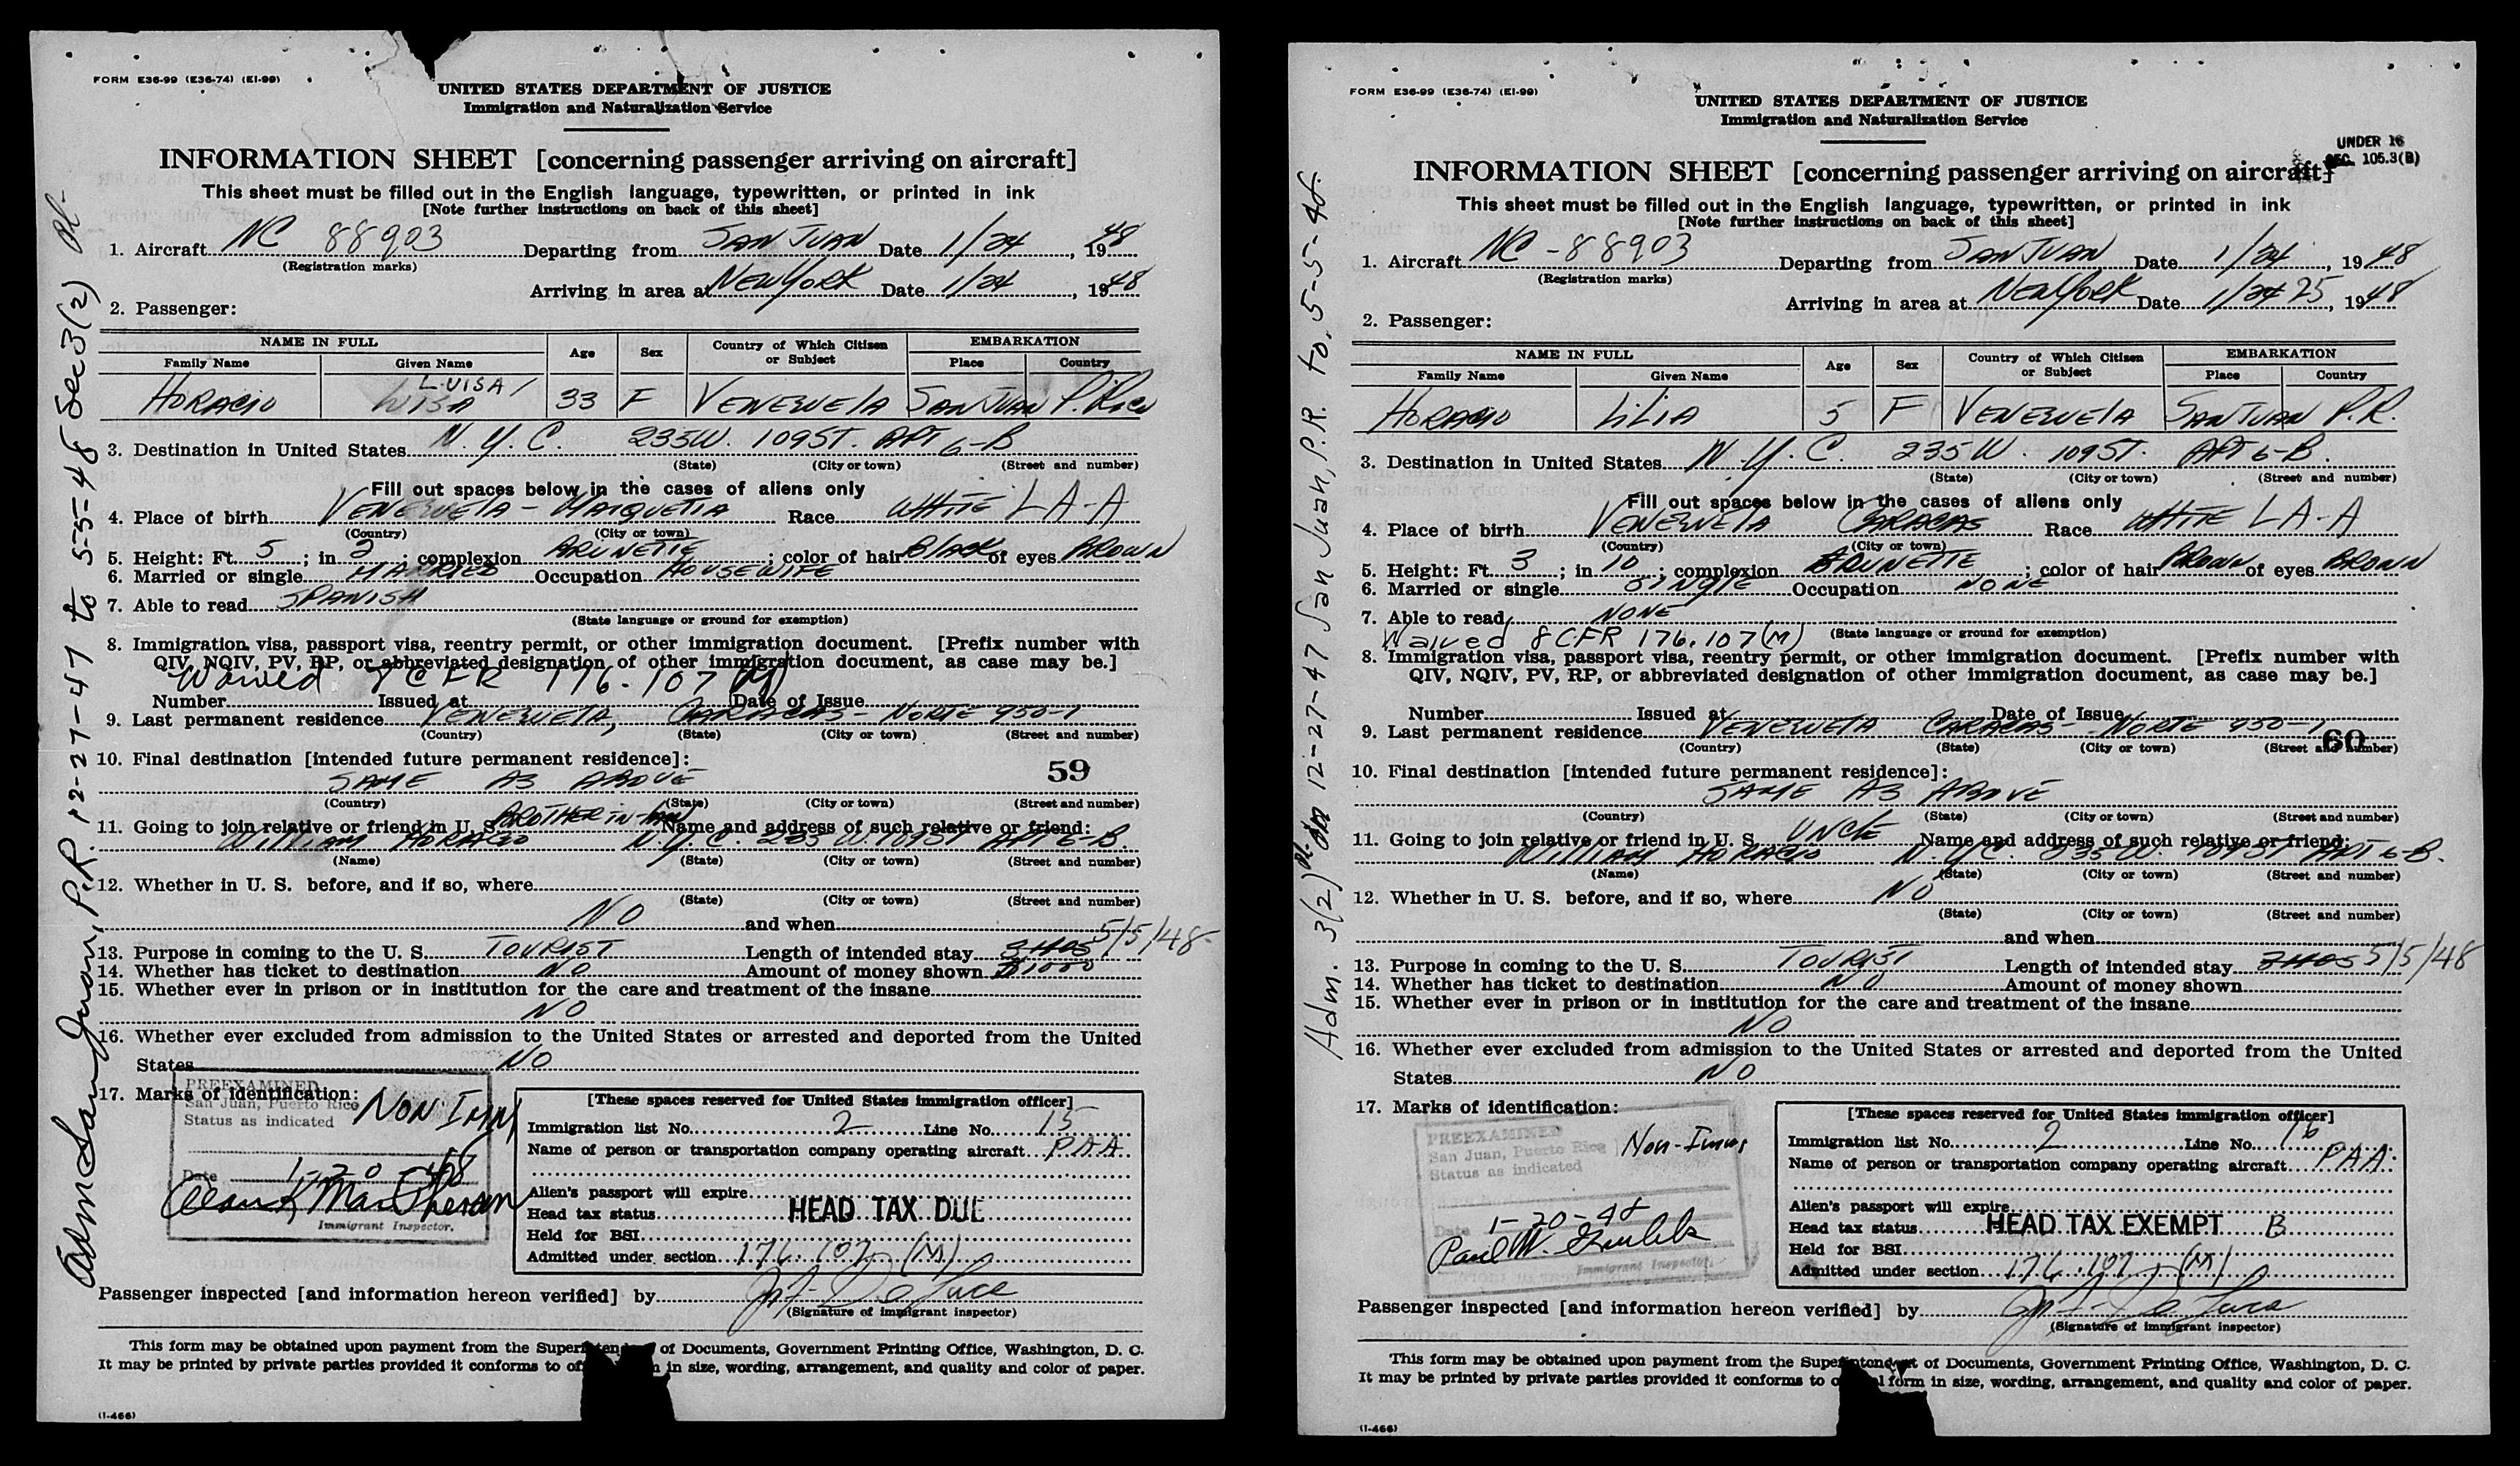 FORM E36-99 (E36-74) (EI-99)
UNITED STATES DEPARTMENT OF JUSTICE
Immigration and Naturalization Service
INFORMATION SHEET [concerning passenger arriving on aircraft]
This sheet must be filled out in the English language, typewritten, or printed in ink
[Note further instructions on back of this sheet]
1. Aircraft NC 88903 Departing from SAN JUAN Date 1/24, 1948
(Registration marks)
Arriving in area at NEW YORK Date 1/24, 1948
2. Passenger:
NAME IN FULL Age Sex Country of Which Citizen or Subject EMBARKATION
Family Name Given Name Place Country
LUISA/
HORACIO LUISA 33 F VENEZUELA SAN JUAN P. RICO
3. Destination in United States N.Y.C. 235 W. 109 ST. APT 6-B
(State) (City or town) (Street and number)
Fill out spaces below in the cases of aliens only
4. Place of birth VENEZUELA - MAIQUETIA Race WHITE LA-A
(Country) (City or town)
5. Height: Ft. 5; in 2; complexion BRUNETTE; color of hair BLACK of eyes BROWN
6. Married or single MARRIED Occupation HOUSEWIFE
7. Able to read SPANISH
(State language or ground for exemption)
8. Immigration visa, passport visa, reentry permit, or other immigration document. [Prefix number with
QIV, NQIV, PV, RP, or abbreviated designation of other immigration document, as case may be.]
Waived 8 CFR 176.107 (M)
Number Issued at Date of Issue
9. Last permanent residence VENEZUELA, CARACAS - NORTE 950-1
(Country) (State) (City or town) (Street and number)
10. Final destination [intended future permanent residence]:
59
SAME AS ABOVE
(Country) (State) (City or town) (Street and number)
11. Going to join relative or friend in U. S. BROTHER IN-LAW Name and address of such relative or friend:
WILLIAM HORACIO N.Y.C. 235 W. 109 ST APT 6-B.
(Name) (State) (City or town) (Street and number)
12. Whether in U. S. before, and if so, where
(State) (City or town) (Street and number)
NO and when
13. Purpose in coming to the U. S. TOURIST Length of intended stay 3 MOS 5/5/48
14. Whether has ticket to destination NO Amount of money shown $1000
15. Whether ever in prison or in institution for the care and treatment of the insane
NO
16. Whether ever excluded from admission to the United States or arrested and deported from the United
States NO
17. Marks of identification:
PREEXAMINED
San Juan, Puerto Rico Non-Imm
Status as indicated
Date 1-20-48
Immigrant Inspector.
[These spaces reserved for United States immigration officer]
Immigration list No. 2 Line No. 15
Name of person or transportation company operating aircraft PAA
Alien's passport will expire
Head tax status HEAD TAX DUE
Held for BSI
Admitted under section 176.107 (M)
Passenger inspected [and information hereon verified] by
(Signature of immigrant inspector)
This form may be obtained upon payment from the Superintendent of Documents, Government Printing Office, Washington, D. C.
It may be printed by private parties provided it conforms to in size, wording, arrangement, and quality and color of paper.
(I-466)
Adm San Juan, P.R. 12-27-47 to 5-5-48 Sec 3(2)
FORM E36-99 (E36-74) (EI-99)
UNITED STATES DEPARTMENT OF JUSTICE
Immigration and Naturalization Service
UNDER 16
SEC. 105.3(B)
INFORMATION SHEET [concerning passenger arriving on aircraft]
This sheet must be filled out in the English language, typewritten, or printed in ink
[Note further instructions on back of this sheet]
1. Aircraft NC-88903 Departing from SAN JUAN Date 1/24, 1948
(Registration marks)
Arriving in area at NEW YORK Date 1/24 25, 1948
2. Passenger:
NAME IN FULL Age Sex Country of Which Citizen or Subject EMBARKATION
Family Name Given Name Place Country
HORACIO LILIA 5 F VENEZUELA SAN JUAN P.R.
3. Destination in United States N.Y.C. 235 W. 109 ST. APT 6-B.
(State) (City or town) (Street and number)
Fill out spaces below in the cases of aliens only
4. Place of birth VENEZUELA CARACAS Race WHITE LA-A
(Country) (City or town)
5. Height: Ft. 3; in 10; complexion BRUNETTE; color of hair BROWN of eyes BROWN
6. Married or single SINGLE Occupation NONE
7. Able to read NONE
Waived 8 CFR 176.107 (M) (State language or ground for exemption)
8. Immigration visa, passport visa, reentry permit, or other immigration document. [Prefix number with
QIV, NQIV, PV, RP, or abbreviated designation of other immigration document, as case may be.]
Number Issued at Date of Issue
9. Last permanent residence VENEZUELA CARACAS - NORTE 950-1
(Country) (State) (City or town) (Street and number)
60
10. Final destination [intended future permanent residence]:
SAME AS ABOVE
(Country) (State) (City or town) (Street and number)
11. Going to join relative or friend in U. S. UNCLE Name and address of such relative or friend:
WILLIAM HORACIO N.Y.C. 235 W. 109 ST APT 6-B.
(Name) (State) (City or town) (Street and number)
12. Whether in U. S. before, and if so, where NO
(State) (City or town) (Street and number)
and when
13. Purpose in coming to the U. S. TOURIST Length of intended stay 3 MOS 5/5/48
14. Whether has ticket to destination NO Amount of money shown
15. Whether ever in prison or in institution for the care and treatment of the insane
NO
16. Whether ever excluded from admission to the United States or arrested and deported from the United
States NO
17. Marks of identification:
PREEXAMINED
San Juan, Puerto Rico Non-Imm
Status as indicated
Date 1-20-48
Paul W.
Immigrant Inspector.
[These spaces reserved for United States immigration officer]
Immigration list No. 2 Line No. 16
Name of person or transportation company operating aircraft PAA
Alien's passport will expire
Head tax status HEAD TAX EXEMPT B
Held for BSI
Admitted under section 176.107 (M)
Passenger inspected [and information hereon verified] by
(Signature of immigrant inspector)
This form may be obtained upon payment from the Superintendent of Documents, Government Printing Office, Washington, D. C.
It may be printed by private parties provided it conforms to form in size, wording, arrangement, and quality and color of paper.
(I-466)
Adm. 3(2) 12-27-47 San Juan, P.R. to 5-5-48.